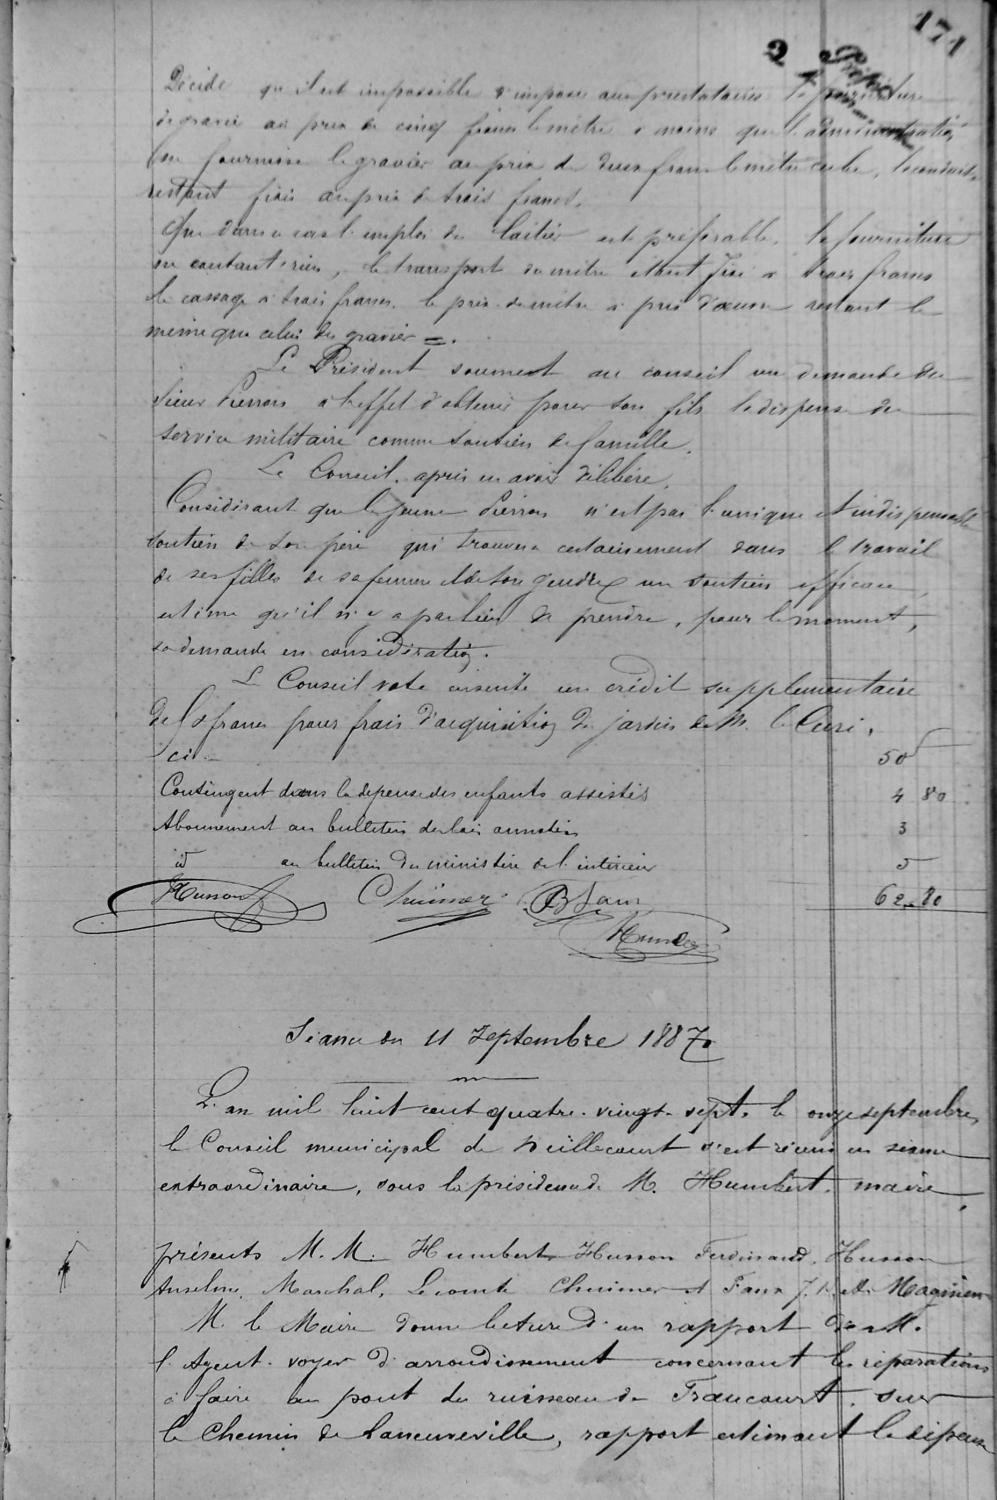 171
2
Décide qu'il est impossible d'imposer aux prestataires la fourniture
de gravier au prix de cinq francs le mètre à moins que l'administration
ne fournisse le gravier au prix de deux francs le mètre cube, la conduite
restant fixée au prix de trois francs.
Que dans ce cas l'emploi du laitier est préférable, la fourniture
ne coutant rien, le transport du mètre étant fixé à trois francs
le cassage à trois francs, le prix du mètre à pied d'œuvre restant le
même que celui du gravier =.
Le Président soumet au conseil une demande du
sieur Pierron à l'effet d'obtenir pour son fils la dispense du
service militaire comme soutien de famille.
Le Conseil, après en avoir délibéré,
Considérant que le jeune Pierron n'est pas l'unique et indispensable
soutien de son père qui trouvera certainement dans le travail
de ses filles de sa femme et de son gendre un soutien efficace,
estime qu'il n'y a pas lieu de prendre, pour le moment,
sa demande en considération.
Le Conseil vote ensuite un crédit supplémentaire
de 50 francs pour frais d'acquisition du jardin de M. le Curé,
ci 50
Contingent dans la dépense des enfants assistés 4 80
Abonnement au bulletin des lois annotées 3
id au bulletin du ministère de l'intérieur 5
62.80
Husson Chuinner B Faux
Humbert
Séance du 11 Septembre 1887
L'an mil huit cent quatre-vingt-sept, le onze septembre,
le Conseil municipal de Neuillecourt s'est réuni en séance
extraordinaire, sous la présidence de M. Humbert, maire,
présents M. M. Humbert Husson Ferdinand, Husson
Anselme, Marchal, Lecomte Chuinner et Faux J. B. et Maginien
M. le Maire donne lecture d'un rapport de M.
l'Agent-voyer d'arrondissement concernant les réparations
à faire au pont du ruisseau de Francourt, sur
le Chemin de Laneuveville, rapport estimant la dépense